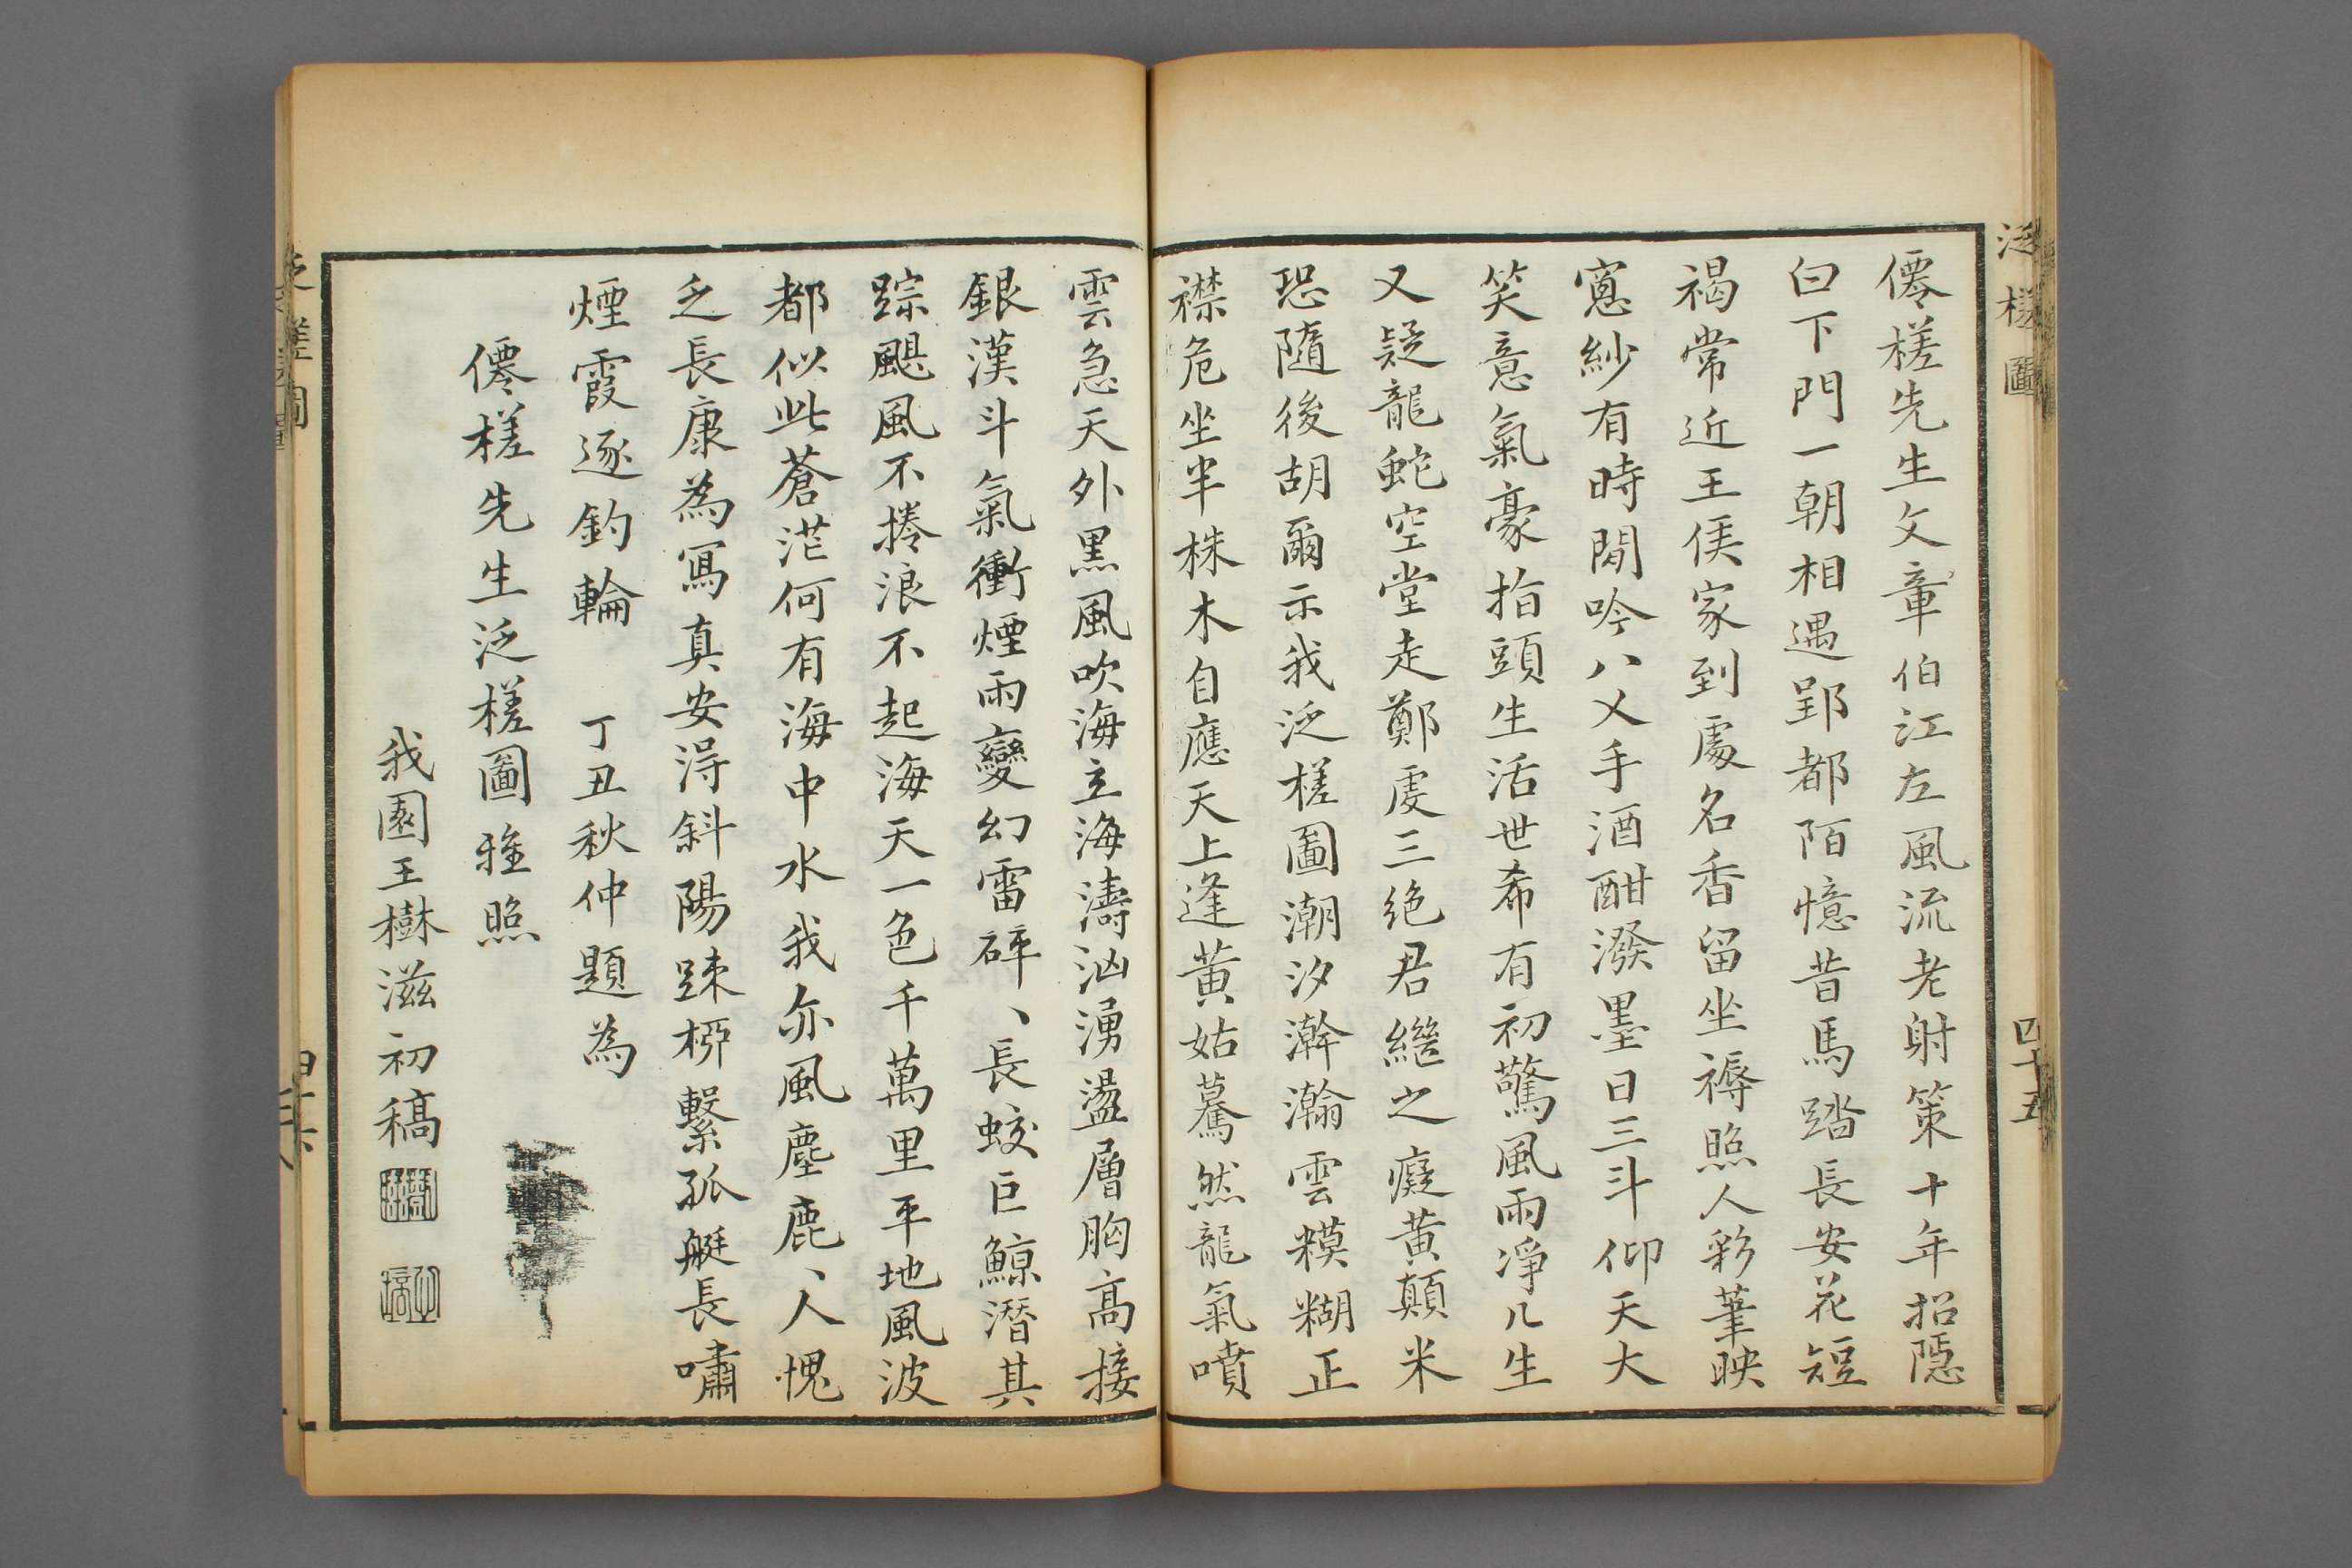 泛槎圖
四十五
僊槎先生文章伯江左風流老射策十年招隱
白下門一朝相遇郢都陌憶昔馬踏長安花短
褐常近王侯家到處名香留坐褥照人彩筆映
窻紗有時閒吟八乂手酒酣潑墨日三斗仰天大
笑意氣豪指頭生活世希有初驚風雨淨几生
又疑龍蛇空堂走鄭虔三絶君繼之癡黃顛米
恐隨後胡爾示我泛槎圖潮汐澣瀚雲糢糊正
襟危坐半株木自應天上逢黃姑驀然龍氣噴
雲急天外黒風吹海立海濤洶湧盪層胸高接
銀漢斗氣衝煙雨變幻雷砰、長蛟巨鯨潛其
踪颶風不捲浪不起海天一色千萬里平地風波
都似此蒼茫何有海中水我亦風塵鹿、人愧
乏長康為寫真安得斜陽疎栁繫孤艇長嘯
煙霞逐釣輪 丁丑秋仲題為
僊槎先生泛槎圖雅照
我園王樹滋初稿